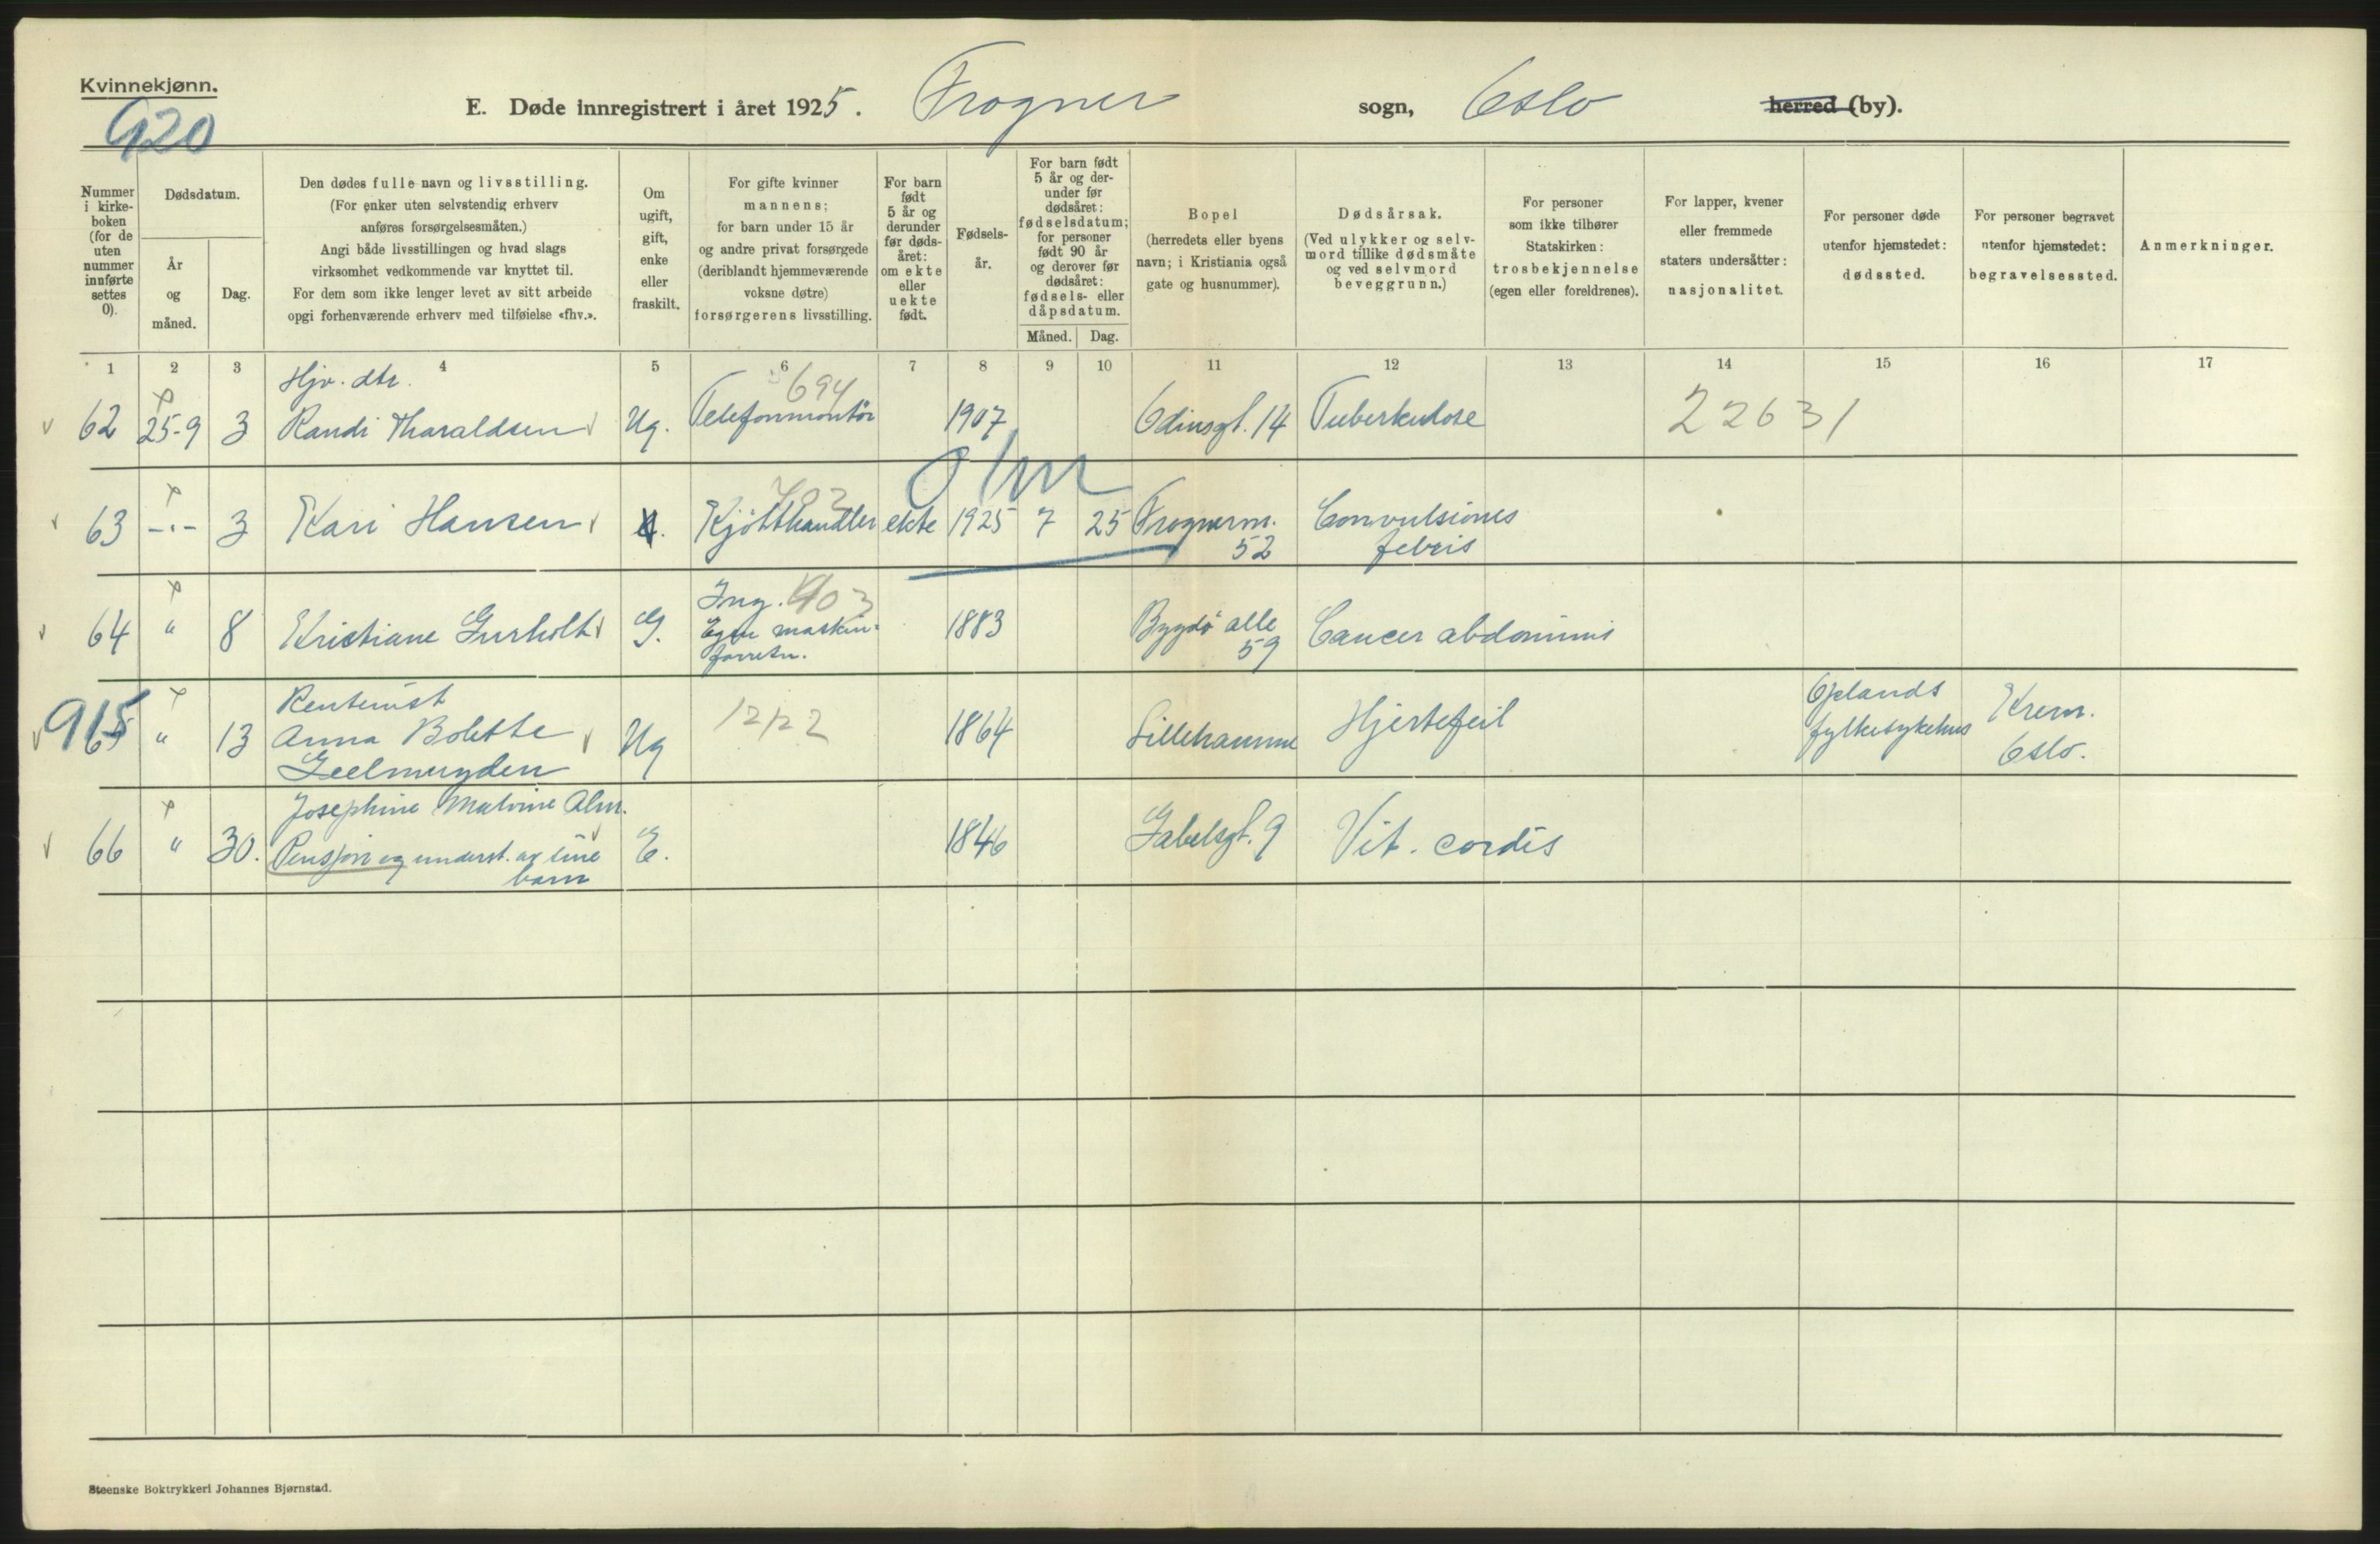 Kvinnekjønn.
920
E. Døde innregistrert i året 1925. Frogner sogn, Oslo herred (by).
Nummer i kirke-boken (for de uten nummer innførte settes 0).
Dødsdatum.
År og måned.
Dag.
Den dødes fulle navn og livsstilling.
(For enker uten selvstendig erhverv
anføres forsørgelsesmåten.)
Angi både livsstillingen og hvad slags
virksomhet vedkommende var knyttet til.
For dem som ikke lenger levet av sitt arbeide
opgi forhenværende erhverv med tilføielse «fhv.».
Om ugift, gift, enke eller fraskilt.
For gifte kvinner
mannens;
for barn under 15 år
og andre privat forsørgede
(deriblandt hjemmeværende
voksne døtre)
forsørgerens livsstilling.
For barn født 5 år og derunder før døds-året: om ekte eller uekte født.
Fødsels-år.
For barn født 5 år og der-under før dødsåret: fødselsdatum; for personer født 90 år og derover før dødsåret: fødsels- eller dåpsdatum.
Måned. Dag.
Bopel
(herredets eller byens
navn; i Kristiania også
gate og husnummer).
Dødsårsak.
(Ved ulykker og selv-
mord tillike dødsmåte
og ved selvmord
beveggrunn.)
For personer
som ikke tilhører
Statskirken:
trosbekjennelse
(egen eller foreldrenes).
For lapper, kvener
eller fremmede
staters undersåtter:
nasjonalitet.
For personer døde
utenfor hjemstedet:
dødssted.
For personer begravet
utenfor hjemstedet:
begravelsessted.
Anmerkninger.
1 2 3 4 5 6 7 8 9 10 11 12 13 14 15 16 17
Hjv. dtr. 694
62 25-9 3 Randi Tharaldsen Ug. Telefonmontör 1907 Odinsgt. 14 Tuberkulose 22631
703
63 -"- 3 Kari Hansen Kjötthandler ekte 1925 7 25 Frognerv. 52 Convulsiones febris
64 " 8 Kristiane Gurholt G. Ing. 903 Egen maskin-forretn. 1883 Bygdö alle 59 Cancer abdominis
915
65 " 13 Rentenist Anna Bolette Geelmuyden Ug 1212 1864 Lillehammer Hjertefeil Oplands fylkesykehus Krem. Oslo.
66 " 30. Josephine Malvine Alm. Pensjon og underst. av sine barn E. 1846 Gabelsgt. 9 Vit. cordis
Steenske Boktrykkeri Johannes Bjørnstad.